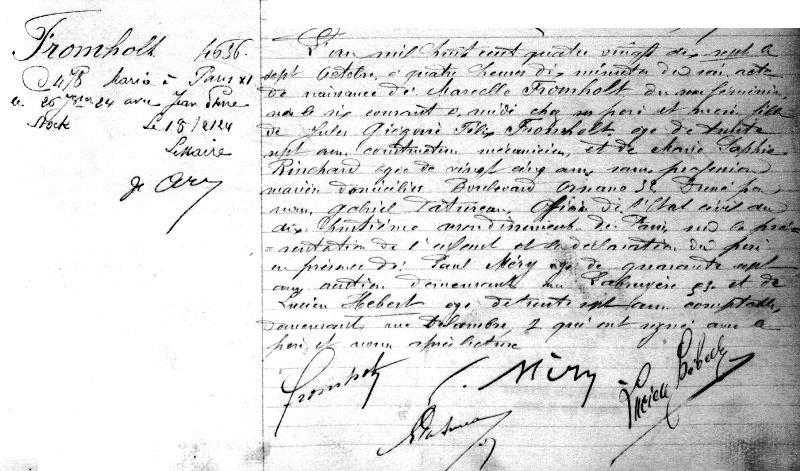 Fromholt 4636
D 478 Marié à Paris XI
le 26 24 avec Jean Pierre
Le 18/2/24
Le Maire
L'an mil huit cent quatre vingt dix sept le
sept Octobre, à quatre heures dix minutes du soir, acte
de naissance de Marcelle Fromholt du sexe féminin,
née le six courant à midi chez ses père et mère, fille
de Jules Grégoire Félix Fromholt, âgé de trente
sept ans, constructeur mécanicien, et de Marie Sophie
Rinchard âgée de vingt cinq ans, sans profession
mariés domiciliés Boulevard Ornano 32. Dressé par
nous, Gabriel Officier de l'Etat civil du
dix huitième arrondissement de Paris, sur la pré-
=sentation de l'enfant et la déclaration du père
en présence de: Paul Méry âgé de quarante sept
ans demeurant rue Labruyère 53. et de
Lucien Hebert âgé de trente sept ans, comptable,
demeurant rue Delambre, 2 qui ont signé avec le
père et nous après lecture
Fromholt Méry Lucien Hébert